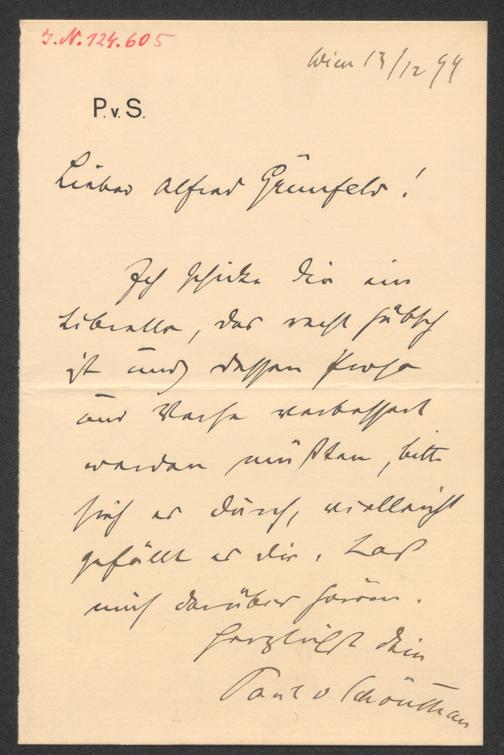 J.N. 124.605
Wien 13/12 94
P.v.S.
Lieber Alfred Grünfeld!
Ich schicke dir ein
Libretto, das recht hübsch
ist und dessen Prosa
und Verse verbessert
werden müßten, bitte
sieh es durch, vielleicht
gefällt es dir. Laß
mich darüber hören.
Herzlichst dein
Paul v Schönthan